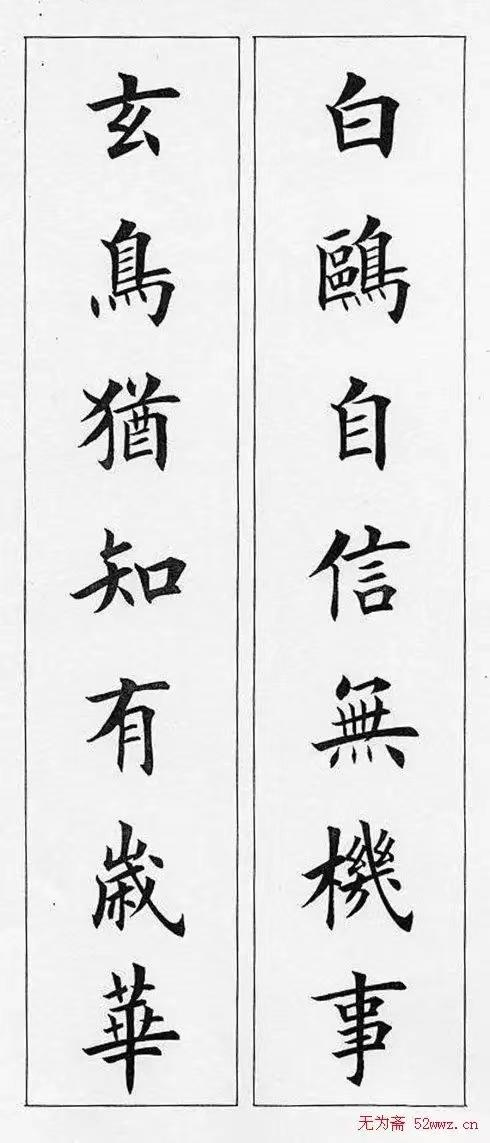 白鷗自信無機事
玄鳥猶知有歲華
无为斋 52wwz.cn